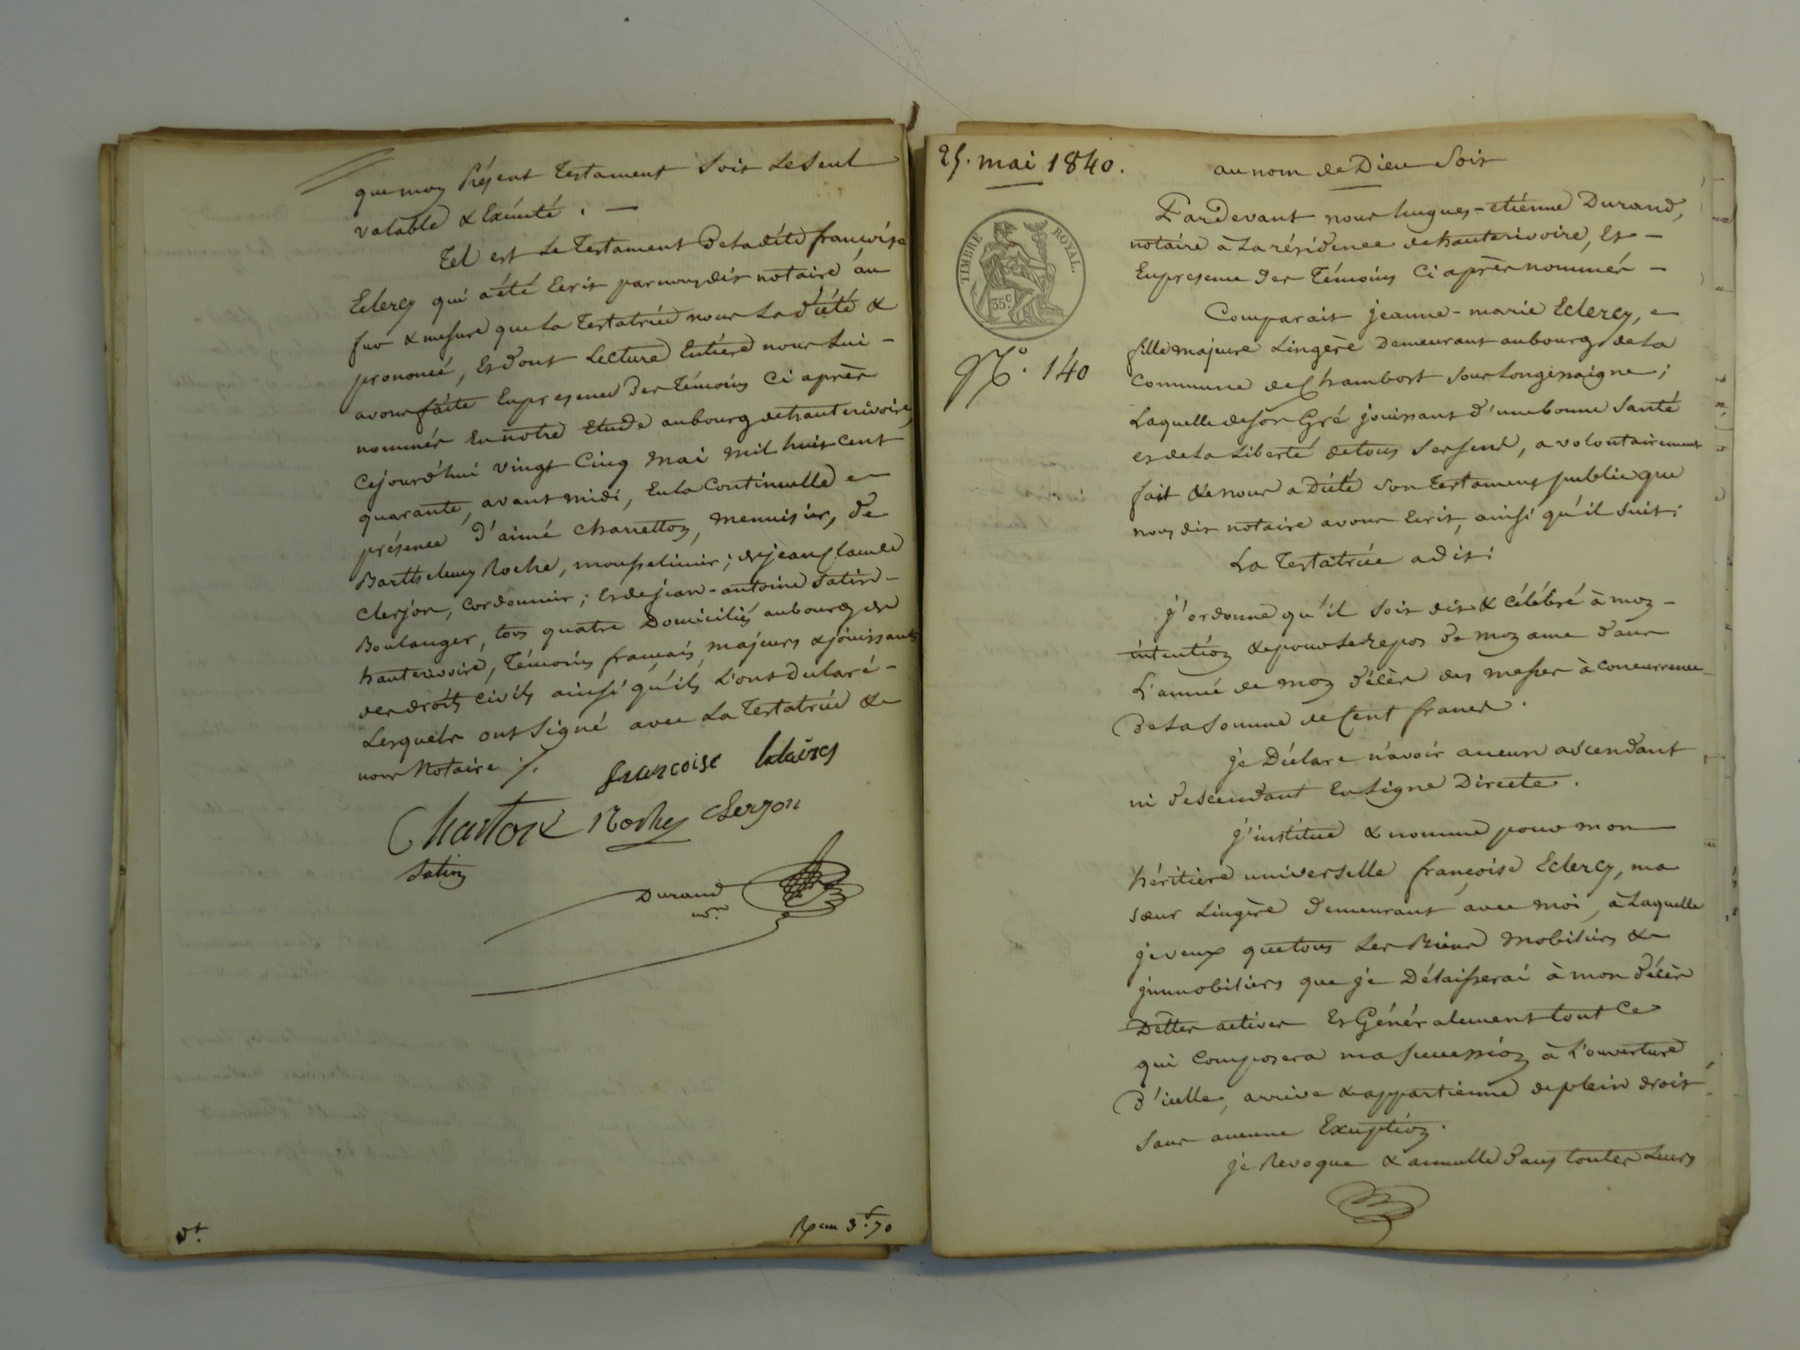 que moy présent testament soit le seul
valable & exécuté . —
Tel est le Testament de ladite françoise
Eclercy qui a été écrit par nous dit notaire au
fur & mesure que la Testatrice nous la dicté &
prononcé, et dont lecture entière nous lui –
avons faite en présence des témoins ci après
nommés en notre étude au bourg de hauterivoire,
cejourd'hui vingt cinq mai mil huit cent
quarante, avant midi, en la continuelle
présence d'aimé charretton, menuisier, de
Barthelemy Roche, mousselinier ; de jean claude
clerjon, cordonnier ; et de jean-antoine Satin –
Boulanger, tous quatre domiciliés au bourg de
hauterivoire, témoins français, majeurs & jouissants
des droits civils ainsi qu'ils l'ont déclaré –
Lesquels ont signé avec la Testatrice &
nous Notaire ;/.
françoise
Roche Clerjon
Satin
Durand
nre
Dt.
3f.70
25. mai 1840.
au nom de Dieu soit
TIMBRE ROYAL.
35c
Pardevant nous hugues-etiénne Durand,
notaire à la résidence de hauterivoire, et –
en présence des témoins ci après nommés –
Comparait jeanne-marie Eclercy,
fille majeure lingère demeurant au bourg de la
N°. 140
commune de Chambost sous longessaigne ;
Laquelle de son gré jouissant d'une bonne santé
et de la liberté de tous ses sens, a volontairement
fait & à nous a dicté son testament public que
nous dit notaire avons écrit, ainsi qu'il suit :
La Testatrice a dit :
j'ordonne qu'il soit dit & célébré à moy –
intention & pour le repos de moy ame dans
l'année de moy décès des messes à concurrence
de la somme de cent francs .
je Déclare n'avoir aucun ascendant
ni descendant en ligne Directe .
j'institue & nomme pour mon
héritière universelle françoise Eclercy, ma
sœur lingère demeurant avec moi, à laquelle
je veux que tous les biens mobiliers &
immobiliers que je délaisserai à mon décès
Dettes actives et généralement tout ce
qui composera ma succession à l'ouverture
d'icelle, arrive & appartienne de plein droit
sans aucune exception.
je Revoque & annulle dans toutes leurs